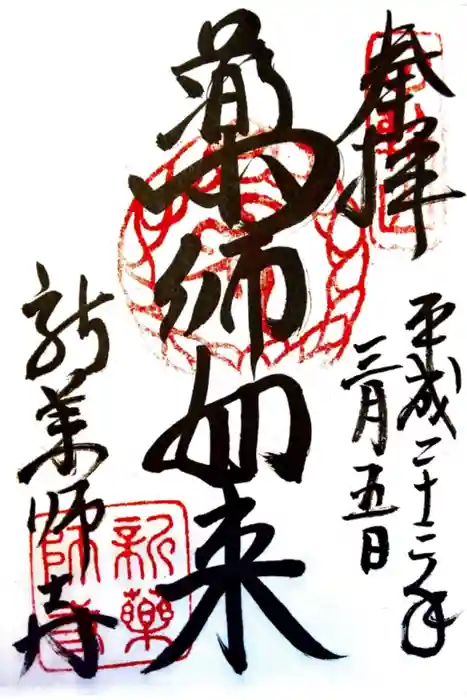 奉拝
平成二十二年
三月五日
薬師如来
新薬師寺
新藥師寺